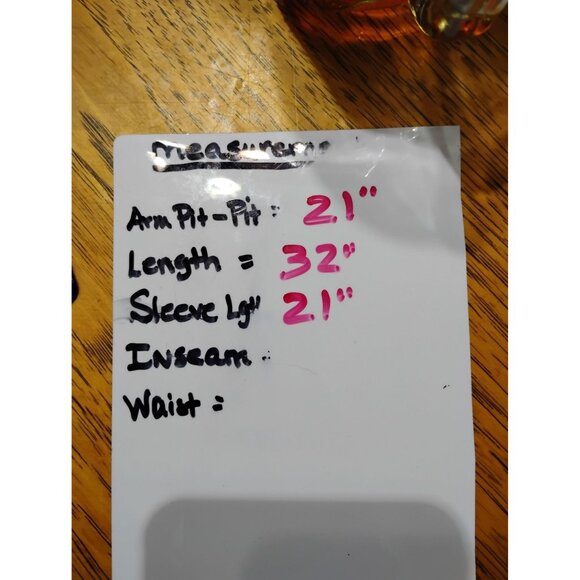 Measurement
Arm Pit-Pit = 21"
Length = 32"
Sleeve Lgth 21"
Inseam =
Waist =